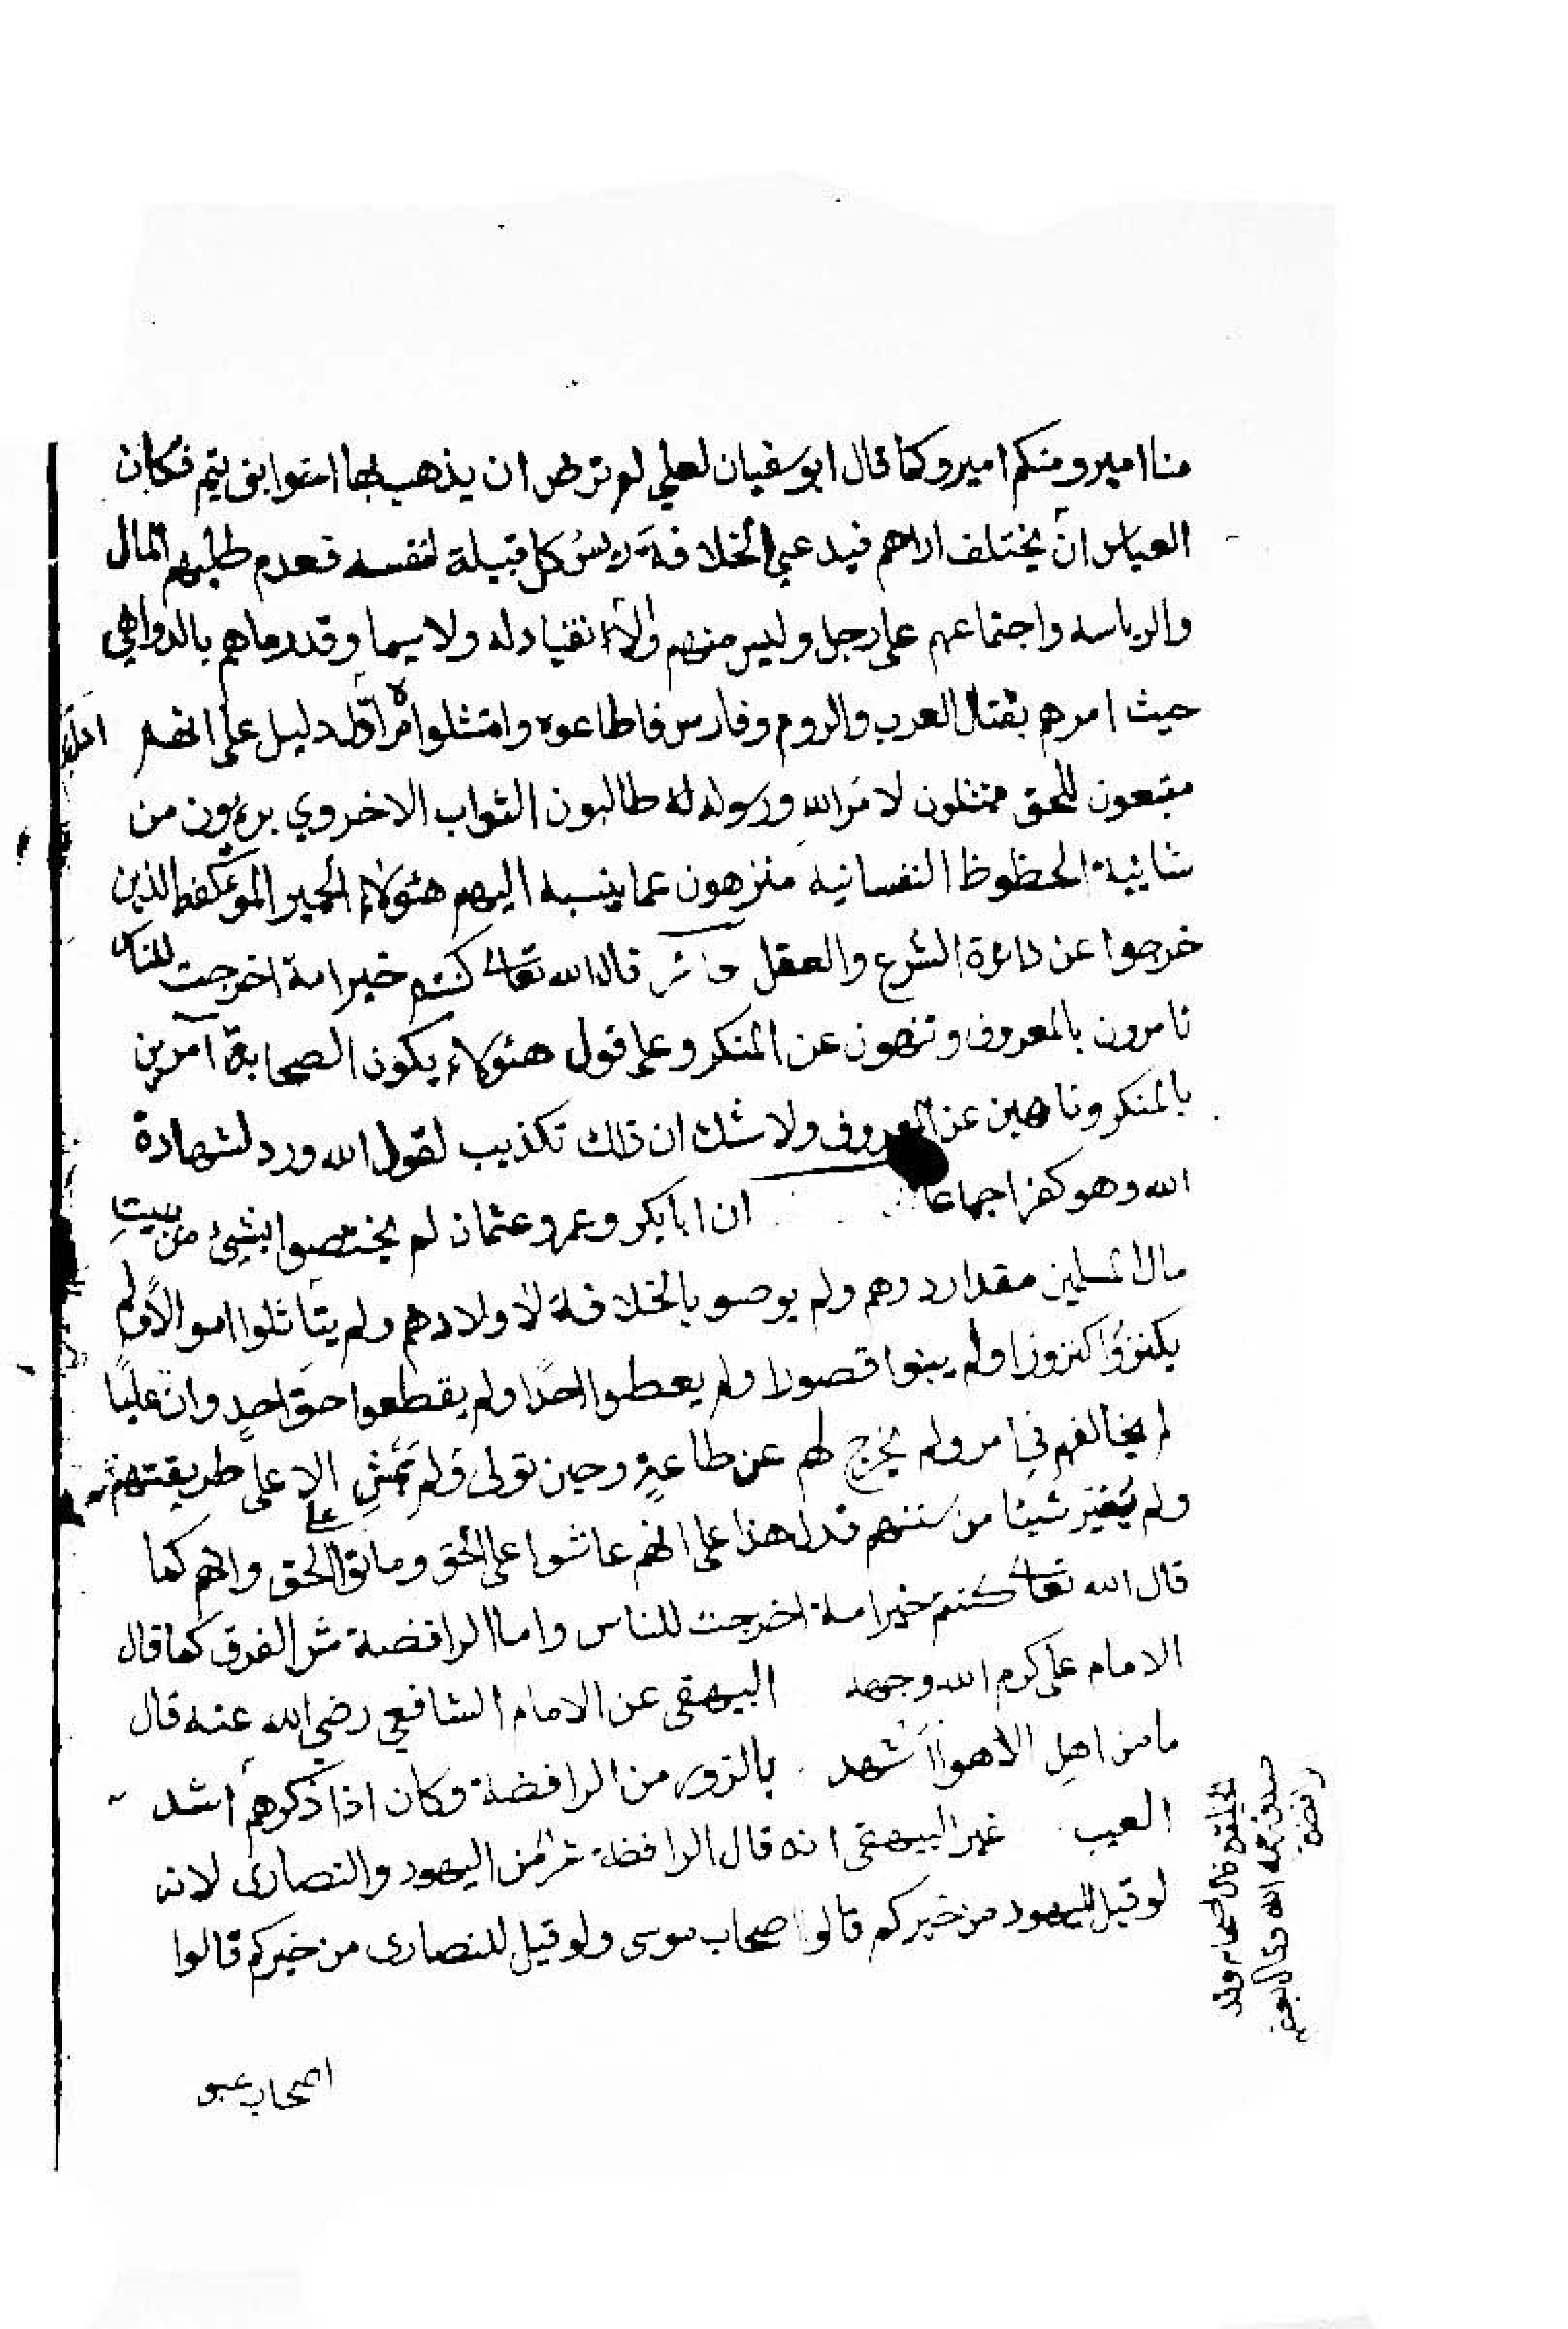 منا امير ومنكم امير وكما قال ابو سفيان لعلي لم ترض ان يذهب بها بني تيم فكان
العباس ان يختلف اراهم فيدعي الخلافة ريس كل قبيلة لنفسه فعدم طلبهم المال
والرياسه واجتماعهم على رجل وليس منهم والانقياد له ولا سيما وقد رماهم بالدواهي
حيث امرهم بقتال العرب والروم وفارس فاطاعوه وامتثلوا امره ادل دليل على انهم
متبعون للحق ممتثلون لامر الله ورسوله طالبون الثواب الاخروي بريون من
شايبة الحظوظ النفسانيه منزهون عما ينسبه اليهم هئولاء الحمير الذين
خرجوا عن دائرة الشرع والعقل قال الله تعالى كنتم خير امة اخرجت للناس
تامرون بالمعروف وتنهون عن المنكر وعلى قول هئولاء يكون الصحابة آمرين
بالمنكر وناهين عن المعروف ولا شك ان ذلك تكذيب لقول الله ورد لشهادة
الله وهو كفر اجماعا ان ابا بكر وعمر وعثمان لم يختصوا بشيئ من بيت
مال المسلمين مقدار درهم ولم يوصو بالخلافة لاولادهم ولم يتاثلوا اموالا ولم
يكنزوا كنزوزا ولم يبنوا قصورا ولم يعطوا احدا ولم يقطعوا حق احد وان عليا
لم يخالفهم في امر ولم يخرج لهم عن طاعة وحين تولى لم يمش الا على طريقتهم
ولم يغير شيئا من سننهم فدل هذا على انهم عاشوا على الحق وماتوا على الحق وانهم كما
قال الله تعالى كنتم خير امة اخرجت للناس واما الرافضة شر الفرق كما قال
الامام علي كرم الله وجهه البيهقي عن الامام الشافعي رضي الله عنه قال
ما من اهل الاهوا اشهد بالزور من الرافضة وكان اذا ذكرهم اشد
العيب غير البيهقي انه قال الرافضة شر من اليهود والنصارى لانه
لو قيل لليهود من خيركم قالوا اصحاب موسى ولو قيل للنصارى من خيركم قالوا
اصحاب عيو